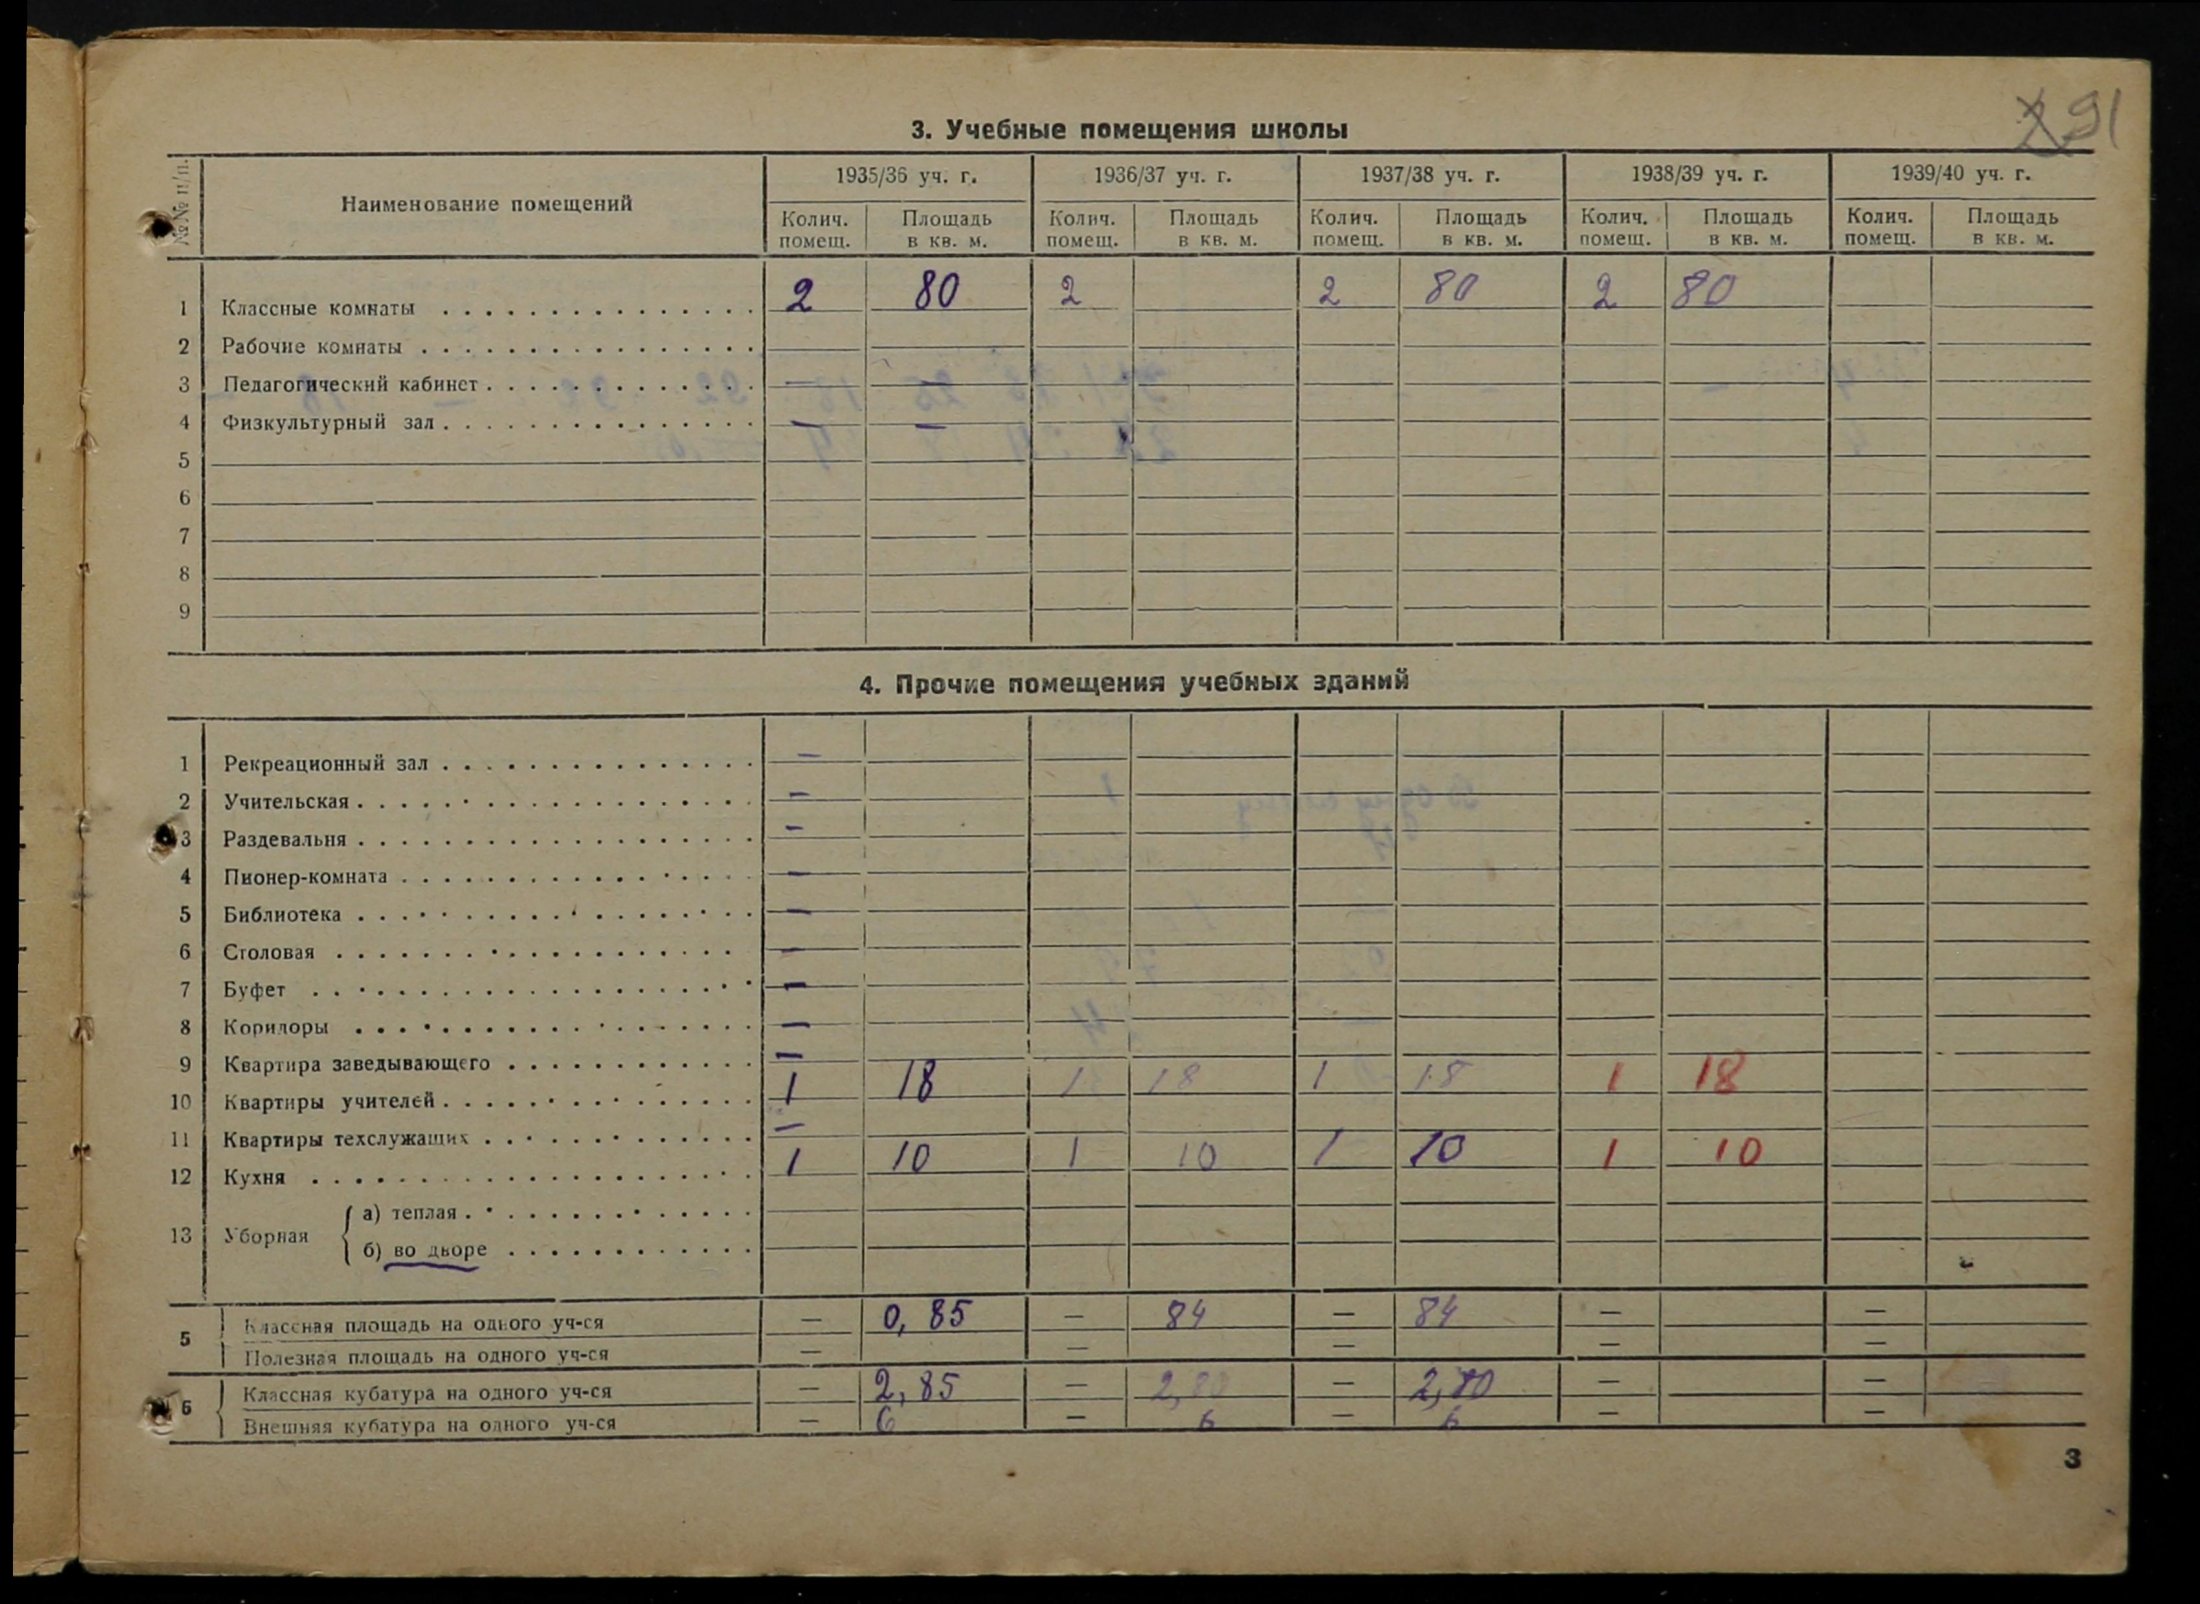 91
3. Учебные помещения школы
№№ п/п.
Наименование помещений
1935/36 уч. г. 1936/37 уч. г. 1937/38 уч. г. 1938/39 уч. г. 1939/40 уч. г.
Колич. помещ. Площадь в кв. м. Колич. помещ. Площадь в кв. м. Колич. помещ. Площадь в кв. м. Колич. помещ. Площадь в кв. м. Колич. помещ. Площадь в кв. м.
1 Классные комнаты 2 80 2 2 80 2 80
2 Рабочие комнаты
3 Педагогический кабинет — —
4 Физкультурный зал — —
5
6
7
8
9
4. Прочие помещения учебных зданий
1 Рекреационный зал —
2 Учительская —
3 Раздевальня —
4 Пионер-комната —
5 Библиотека —
6 Столовая —
7 Буфет —
8 Коридоры —
9 Квартира заведывающего —
10 Квартиры учителей 1 18 1 18 1 18 1 18
11 Квартиры техслужащих —
12 Кухня 1 10 1 10 1 10 1 10
13 Уборная
а) теплая
б) во дворе
5 Классная площадь на одного уч-ся — 0,85 — 84 — 84 — —
Полезная площадь на одного уч-ся — — — — —
6 Классная кубатура на одного уч-ся — 2,85 — 2,80 — 2,80 — —
Внешняя кубатура на одного уч-ся — 6 — 6 — 6 — —
3